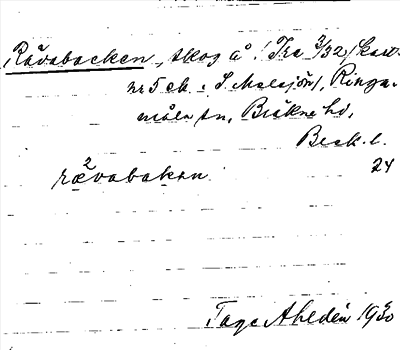 Rävabacken, skog å (Fra 3/32, kart-
nr 5 ek. i S. Målasjön), Ringa-
måla sn, Bräkne hd,
Blek. l.
24
ræ²vabakan
Tage Ahldén 1930